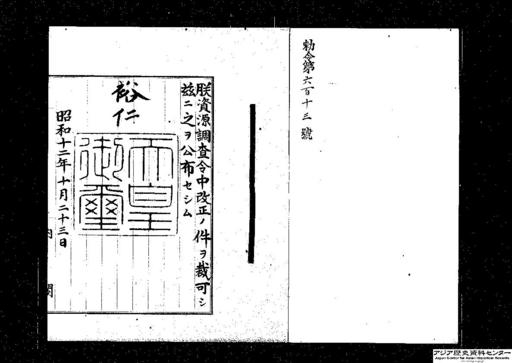 勅令第六百十三號
朕資源調査令中改正ノ件ヲ裁可シ
茲ニ之ヲ公布セシム
裕仁
天皇
御璽
昭和十二年十月二十三日
内閣
アジア歴史資料センター
Japan Center for Asian Historical Records